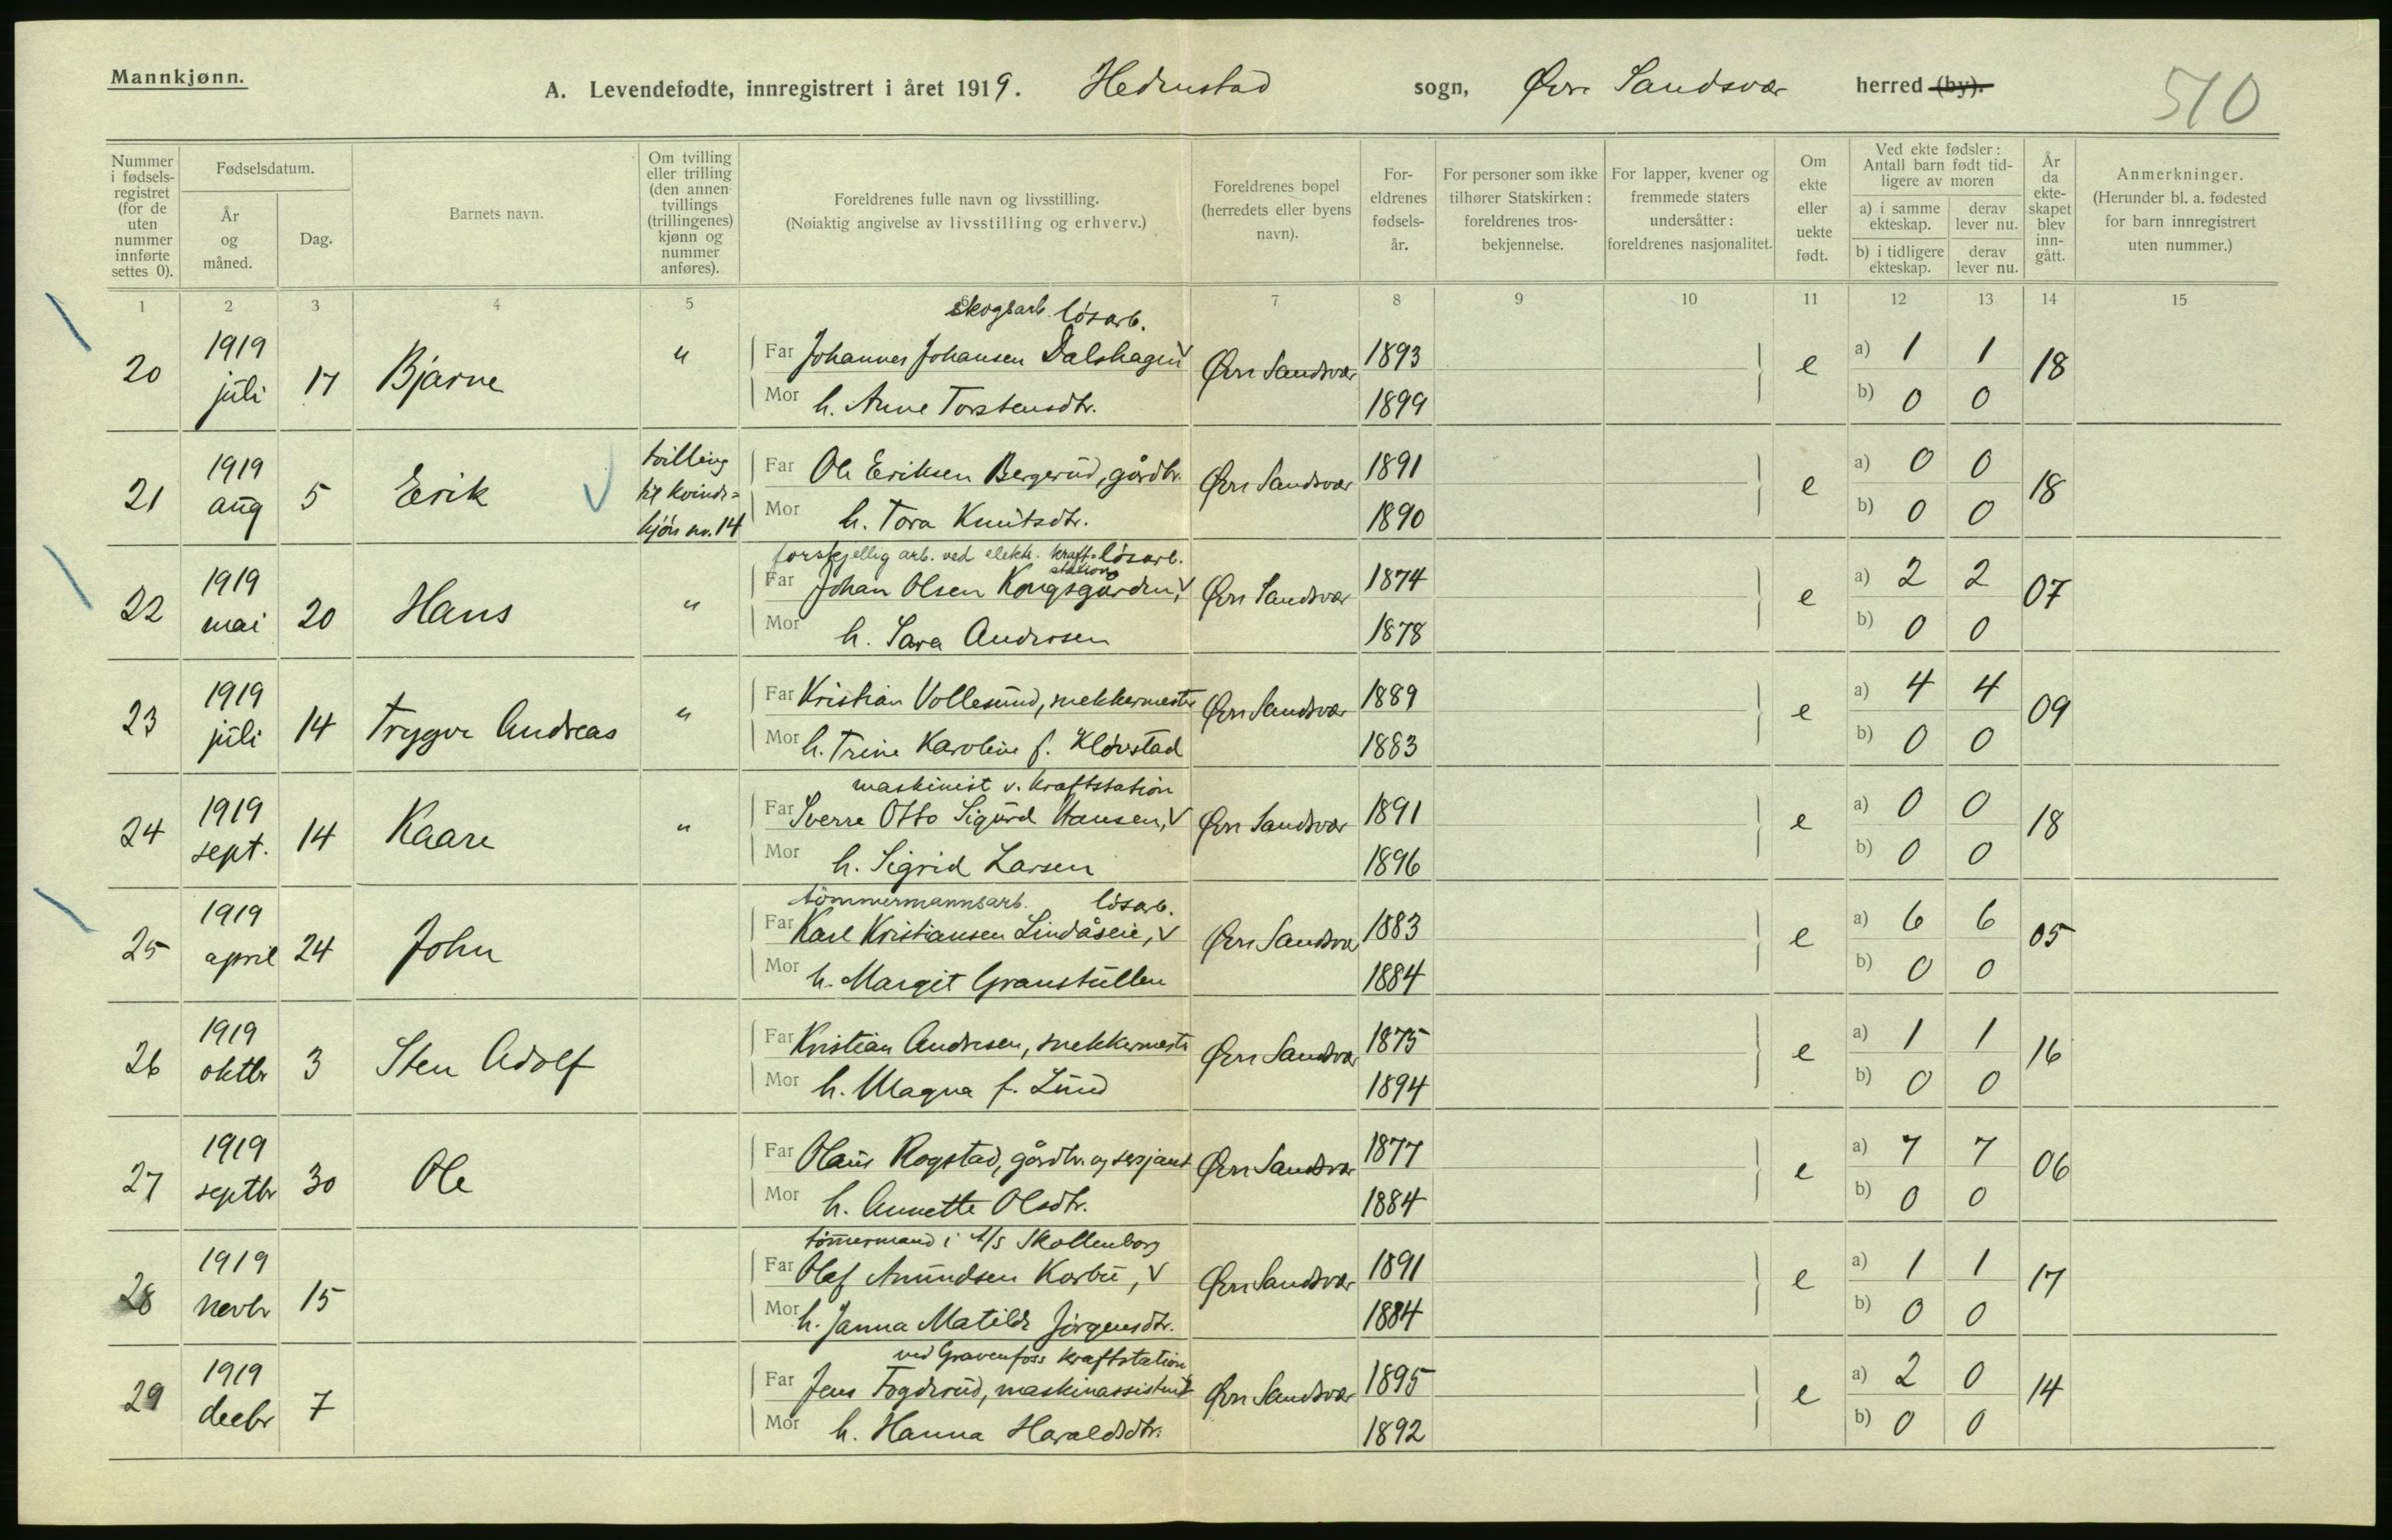 Mannkjønn.
A. Levendefødte, innregistrert i året 1919. Hedenstad sogn, Øvre Sandsvær herred (by).
510
Nummer i fødselsregistret (for de uten nummer innførte settes 0).
Fødselsdatum.
År og måned.
Dag.
Barnets navn.
Om tvilling eller trilling (den annen tvillings (trillingenes) kjønn og nummer anføres).
Foreldrenes fulle navn og livsstilling.
(Nøiaktig angivelse av livsstilling og erhverv.)
Foreldrenes bopel (herredets eller byens navn).
Foreldrenes fødselsår.
For personer som ikke tilhører Statskirken: foreldrenes trosbekjennelse.
For lapper, kvener og fremmede staters undersåtter: foreldrenes nasjonalitet.
Om ekte eller uekte født.
Ved ekte fødsler: Antall barn født tidligere av moren
a) i samme ekteskap.
derav lever nu.
b) i tidligere ekteskap.
derav lever nu.
År da ekteskapet blev inngått.
Anmerkninger.
(Herunder bl. a. fødested for barn innregistrert uten nummer.)
1 2 3 4 5 6 7 8 9 10 11 12 13 14 15
skogsarb. løsarb.
20 1919 juli 17 Bjarne " Far Johannes Johansen Dalshagen V Øvre Sandsvær 1893 e a) 1 1 18
Mor h. Anne Torstensdtr. 1899 b) 0 0
21 1919 aug 5 Erik tvilling til kvindekjøn nr. 14 Far Ole Eriksen Bergerud, gårdbr. Øvre Sandsvær 1891 e a) 0 0 18
Mor h. Tora Knutsdtr. 1890 b) 0 0
forskjellig arb. ved elektr. kraftstation løsarb.
22 1919 mai 20 Hans " Far Johan Olsen Kongsgården, V Øvre Sandsvær 1874 e a) 2 2 07
Mor h. Sara Andersen 1878 b) 0 0
23 1919 juli 14 Trygve Andreas " Far Kristian Vollesund, snekkermester Øvre Sandsvær 1889 e a) 4 4 09
Mor h. Trine Karoline f. Kløvstad 1883 b) 0 0
maskinist v. kraftstation
24 1919 sept. 14 Kaare " Far Sverre Otto Sigurd Hansen, V Øvre Sandsvær 1891 e a) 0 0 18
Mor h. Sigrid Larsen 1896 b) 0 0
tømmermannsarb. løsarb.
25 1919 april 24 John Far Karl Kristiansen Lindåseie, V Øvre Sandsvær 1883 e a) 6 6 05
Mor h. Margit Granstullen 1884 b) 0 0
26 1919 oktbr 3 Sten Adolf Far Kristian Andresen, snekkermester Øvre Sandsvær 1875 e a) 1 1 16
Mor h. Magna f. Lund 1894 b) 0 0
27 1919 septbr 30 Ole Far Olaus Rogstad, gårdbr. og sersjant Øvre Sandsvær 1877 e a) 7 7 06
Mor h. Annette Olsdtr. 1884 b) 0 0
tømmermand i A/S Skollenborg
28 1919 novbr 15 Far Olaf Amundsen Korbu, V Øvre Sandsvær 1891 e a) 1 1 17
Mor h. Janna Matilde Jørgensdtr. 1884 b) 0 0
ved Gravenfoss kraftstation
29 1919 decbr 7 Far Jens Fogderud, maskinassistent Øvre Sandsvær 1895 e a) 2 0 14
Mor h. Hanna Haraldsdtr. 1892 b) 0 0